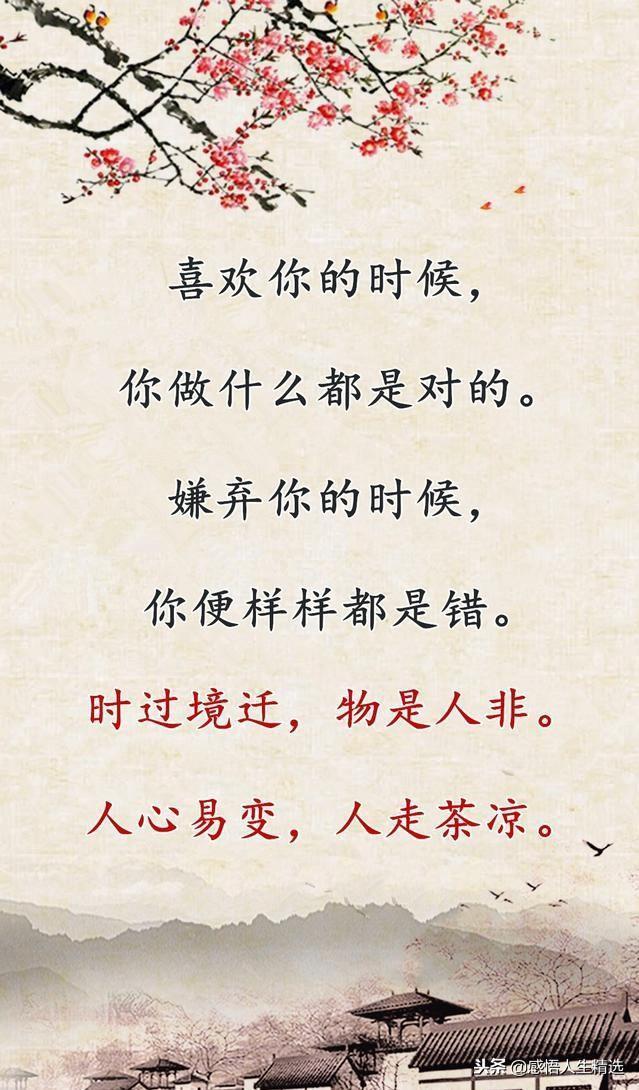 喜欢你的时候，
你做什么都是对的。
嫌弃你的时候，
你便样样都是错。
时过境迁，物是人非。
人心易变，人走茶凉。
头条@感悟人生精选